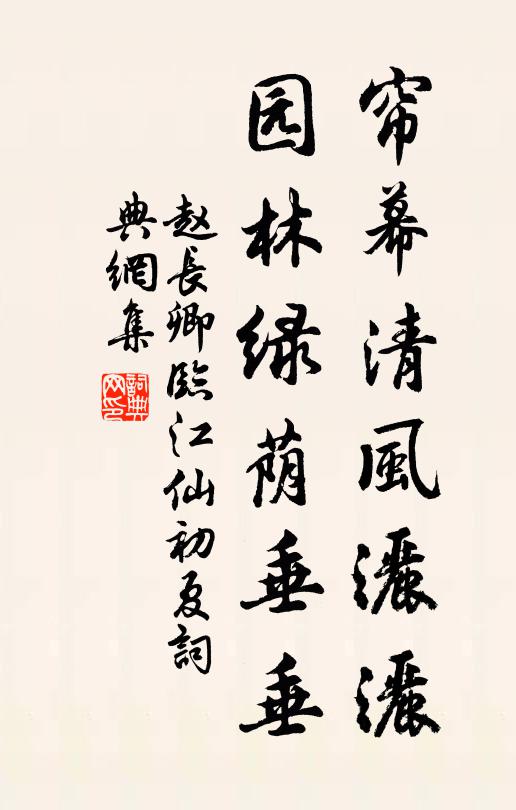 帘幕清風灑灑
园林绿荫垂垂
赵長卿臨江仙初夏詞
典網集
詞典網印